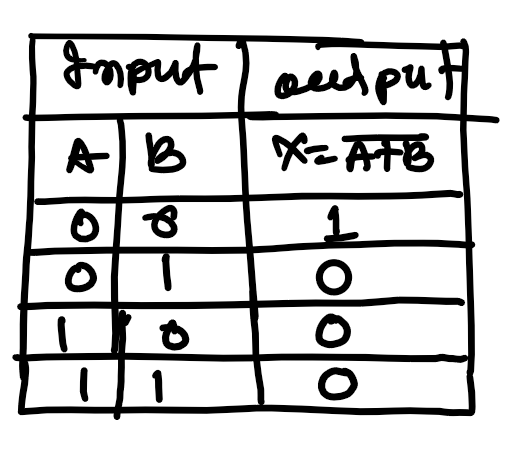 Input output
A B X = \overline{A+B}
0 0 1
0 1 0
1 0 0
1 1 0